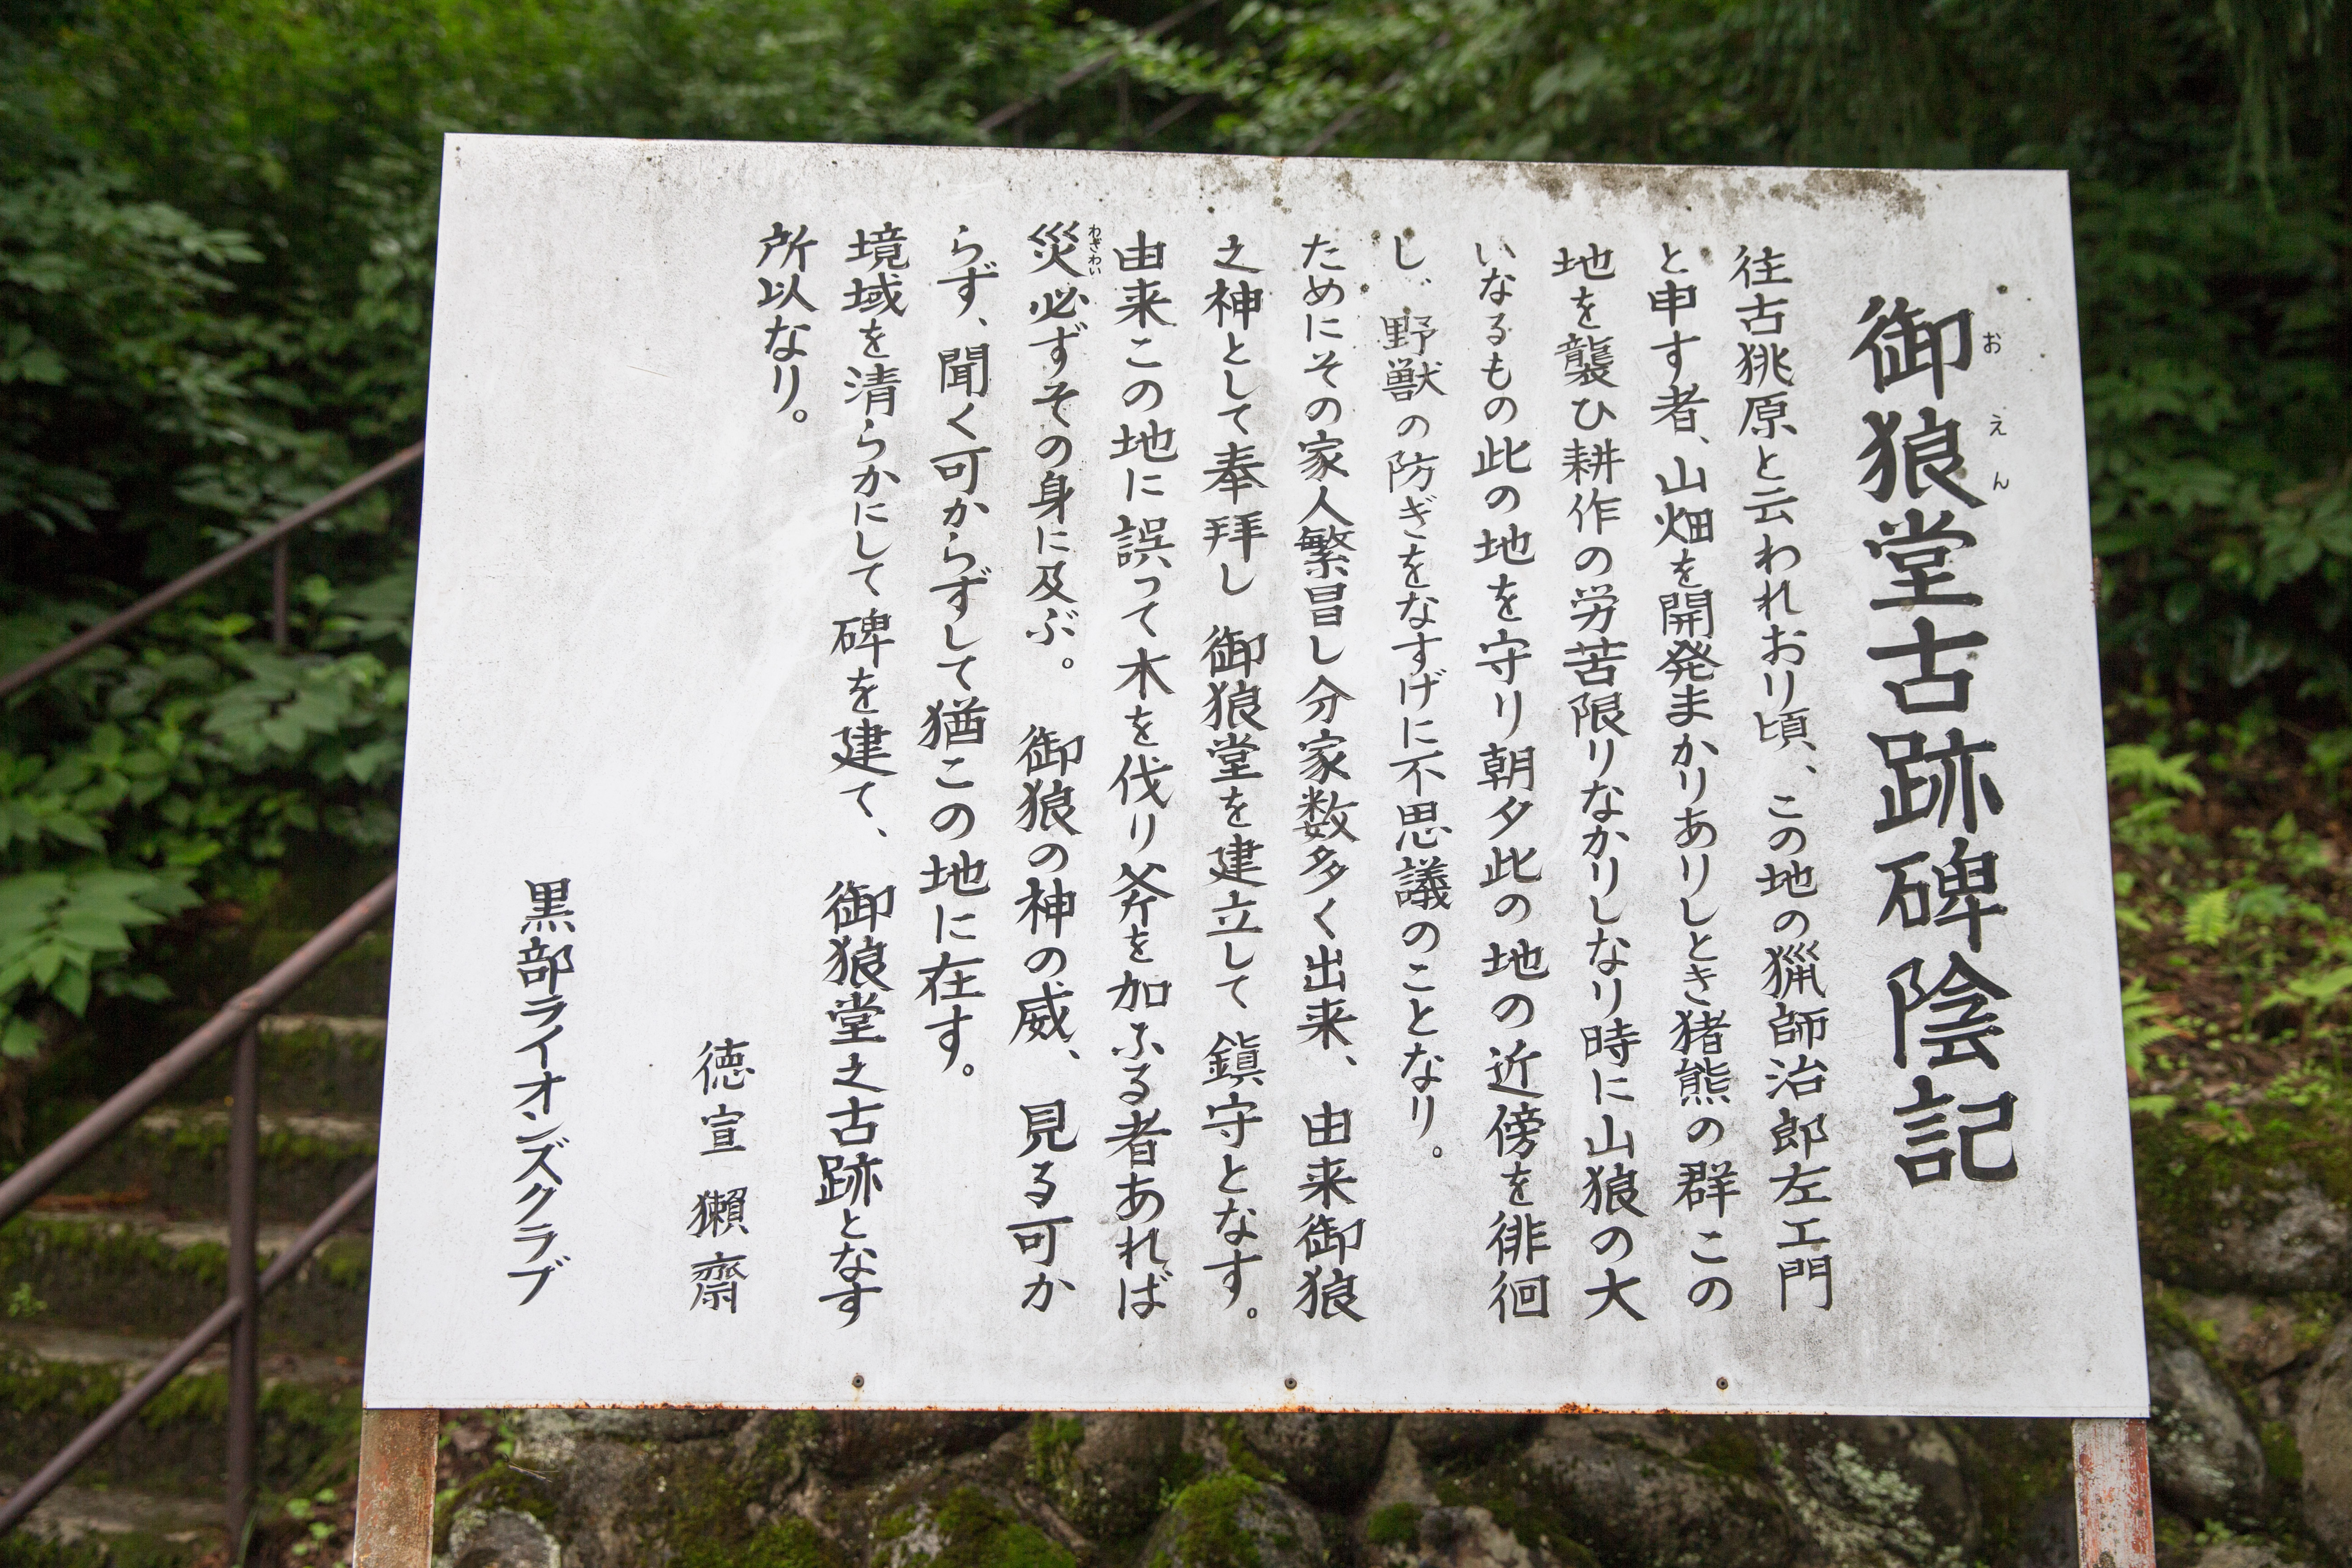 御狼堂古跡碑陰記
おえん
往古狣原と云われおり頃、この地の猟師治郎左エ門
と申す者、山畑を開発まかりありしとき猪熊の群この
地を襲ひ耕作の労苦限りなかりしなり時に山狼の大
いなるもの此の地を守り朝夕此の地の近傍を徘徊
し、野獣の防ぎをなすげに不思議のことなり。
ためにその家人繁昌し分家数多く出来、由来御狼
之神として奉拝し御狼堂を建立して鎮守となす。
由来この地に誤って木を伐り斧を加ふる者あれば
わざわい
災必ずその身に及ぶ。御狼の神の威、見る可か
らず、聞く可からずして猶この地に在す。
境域を清らかにして碑を建て、御狼堂之古跡となす
所以なり。
徳宣獺齋
黒部ライオンズクラブ